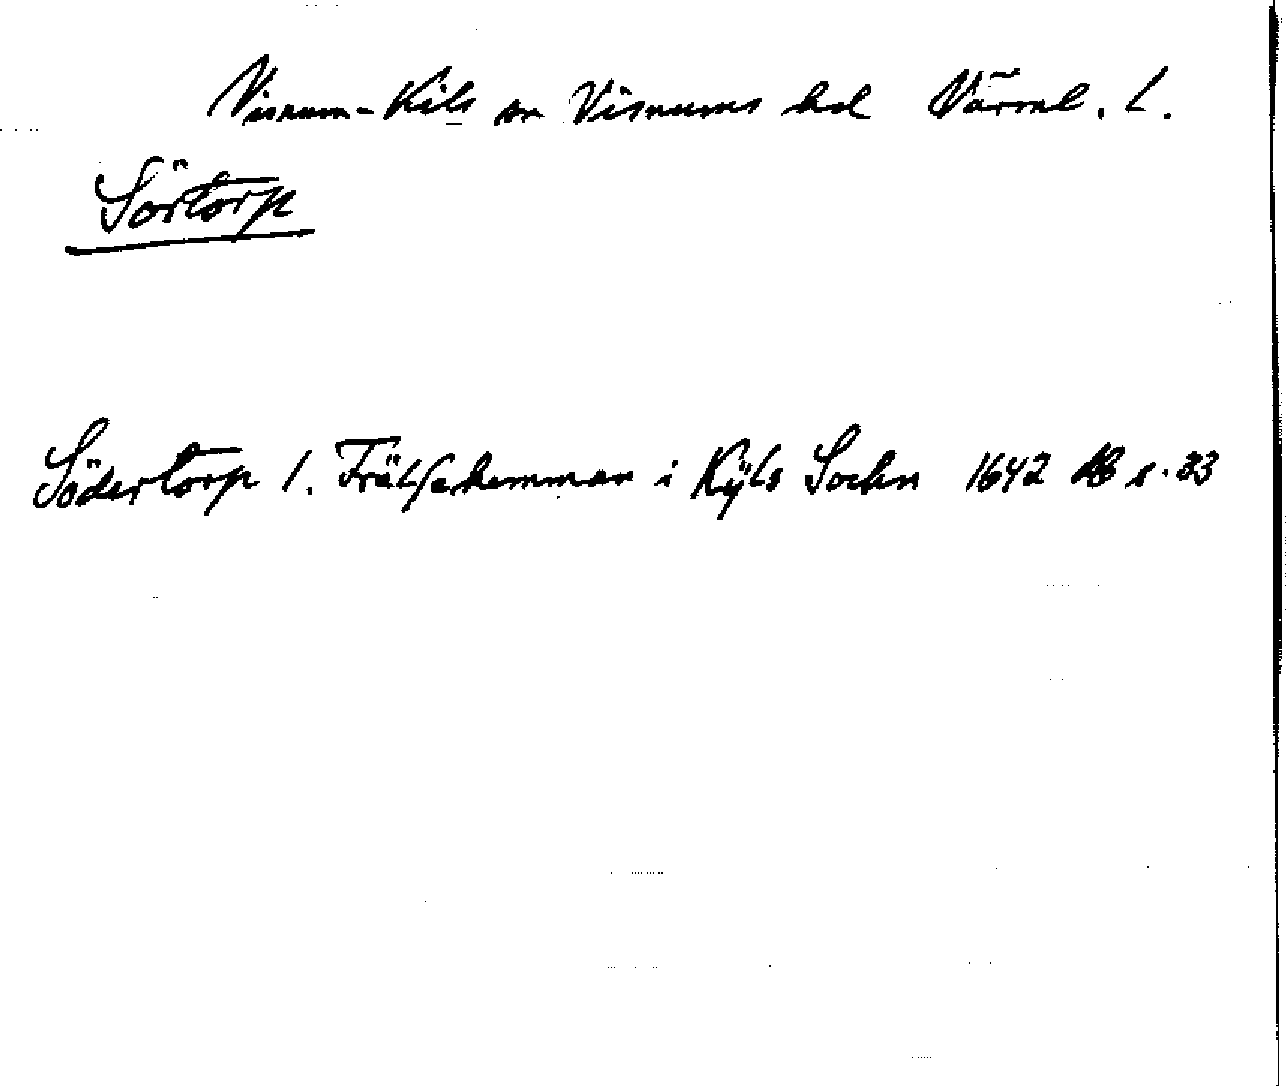 Visnum-Kils sn Visnums hd Värml. l.
Sörtorp
Södertorp 1. Frälsehemman i Kÿls Sochn 1642 AB s. 33